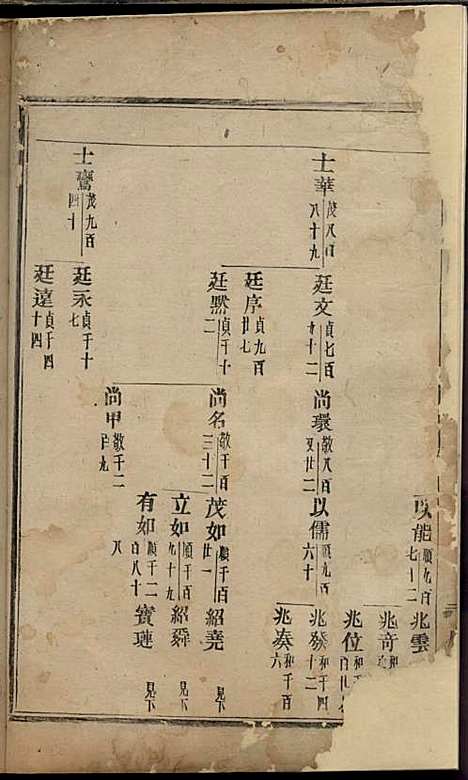 以能 順九百七十二
兆雲
兆奇
兆位
士華 茂八百八十九
廷文 貞七百九十二
尚環 敬八百又廿二
以儒 順九百六十
兆發 和千四十二
兆奏 和千百六
廷序 貞九百廿七
廷黙 貞千十二
尚名 敬千百三十二
茂如 順千百廿一
紹堯 見下
立如 順千百九十九
紹舜 見下
有如 順千二百八十八
寳璉 見下
尚甲 敬千二百九
士鸞 茂九百四十
廷永 貞千十七
廷遠 貞千四十四